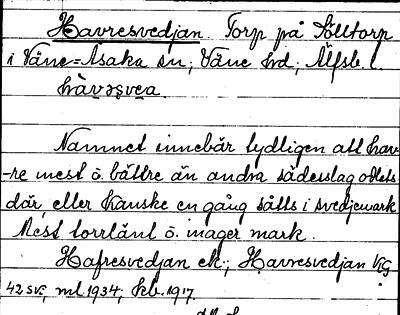 Havresvedjan. Torp på Sölltorp
i Väne-Åsaka sn, Väne hd, Älfsb. l.
hàvrəsvea.
Namnet innebär tydligen att hav-
-re mest o. bättre än andra sädesslag odlats
där, eller kanske en gång såtts i svedjemark
Mest torrlänt o. mager mark.
Hafresvedjan ek.; Havresvedjan VG
42 sv; ml. 1934; kb. 1917.